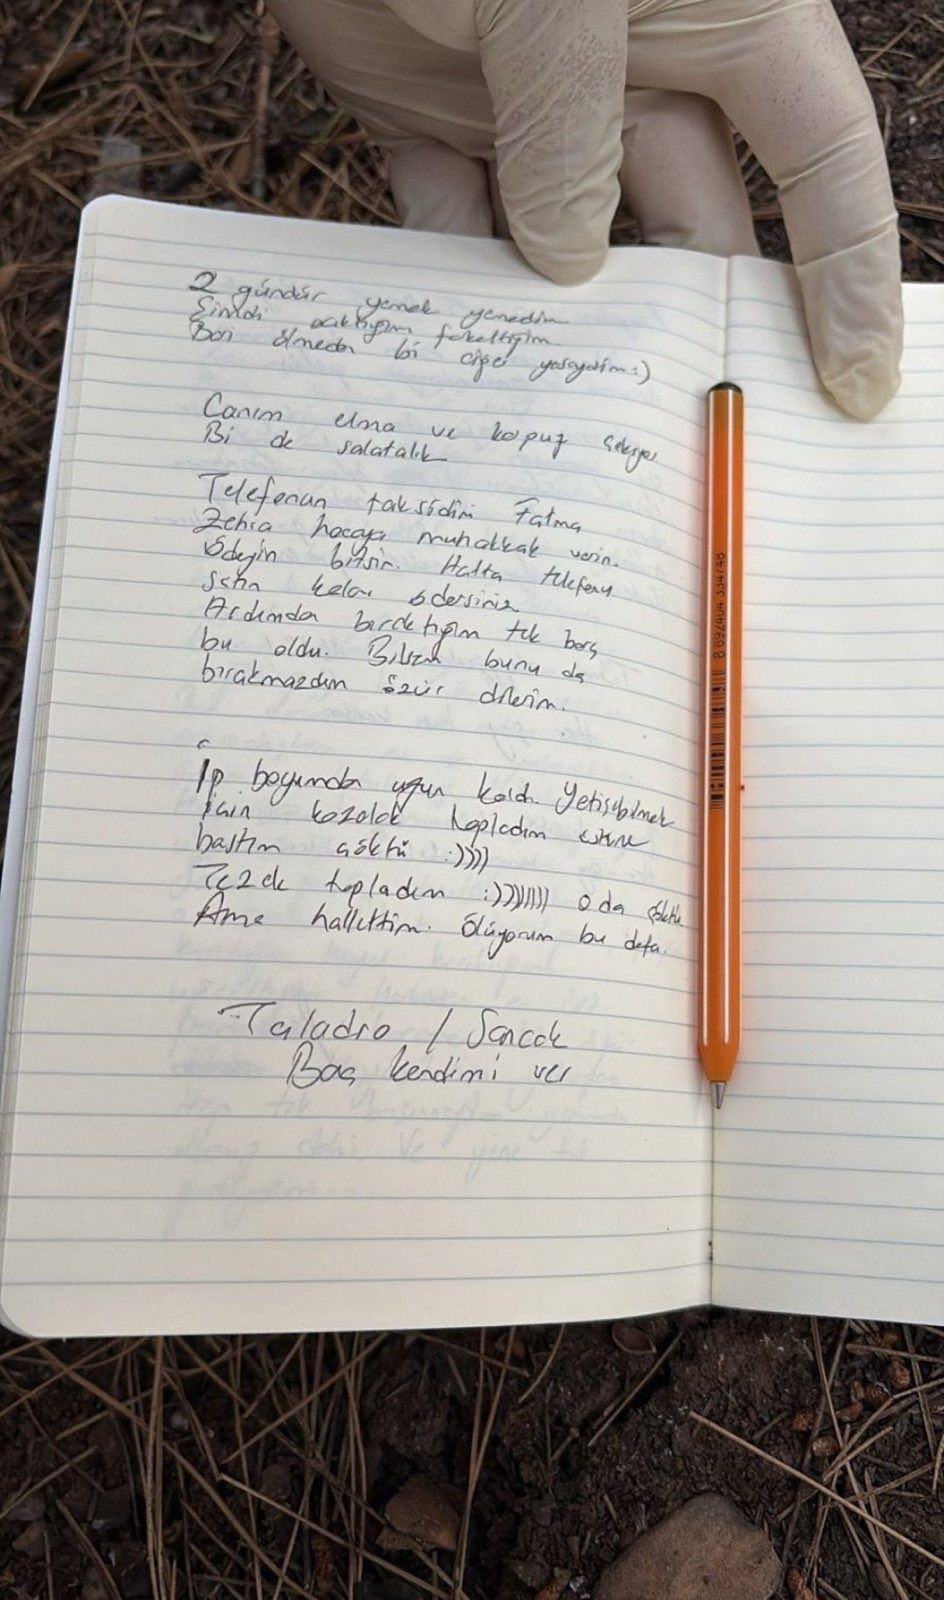 2 gündür yemek yemedim
Şimdi acıktığım farkettiğim.
Bari ölmeden bi ciğer yeseydim :)
Canım elma ve karpuz çekiyor
Bi de salatalık
Telefonun taksidini Fatma
Zehra hocaya muhakkak verin.
Ödeyin bitsin. Hatta telefonu
satın kalanı ödersiniz
Ardımda bıraktığım tek borç
bu oldu. Bilsem bunu da
bırakmazdım özür dilerim.
İp boyumdan uzun kaldı. Yetişebilmek
için kozalak topladım üstüne
bastım çöktü :))))
Tezek topladım :)))))))) o da çöktü.
Ama hallettim. Ölüyorum bu defa.
Taladro / Sancak
Baş kendimi ver
8 692404 334748